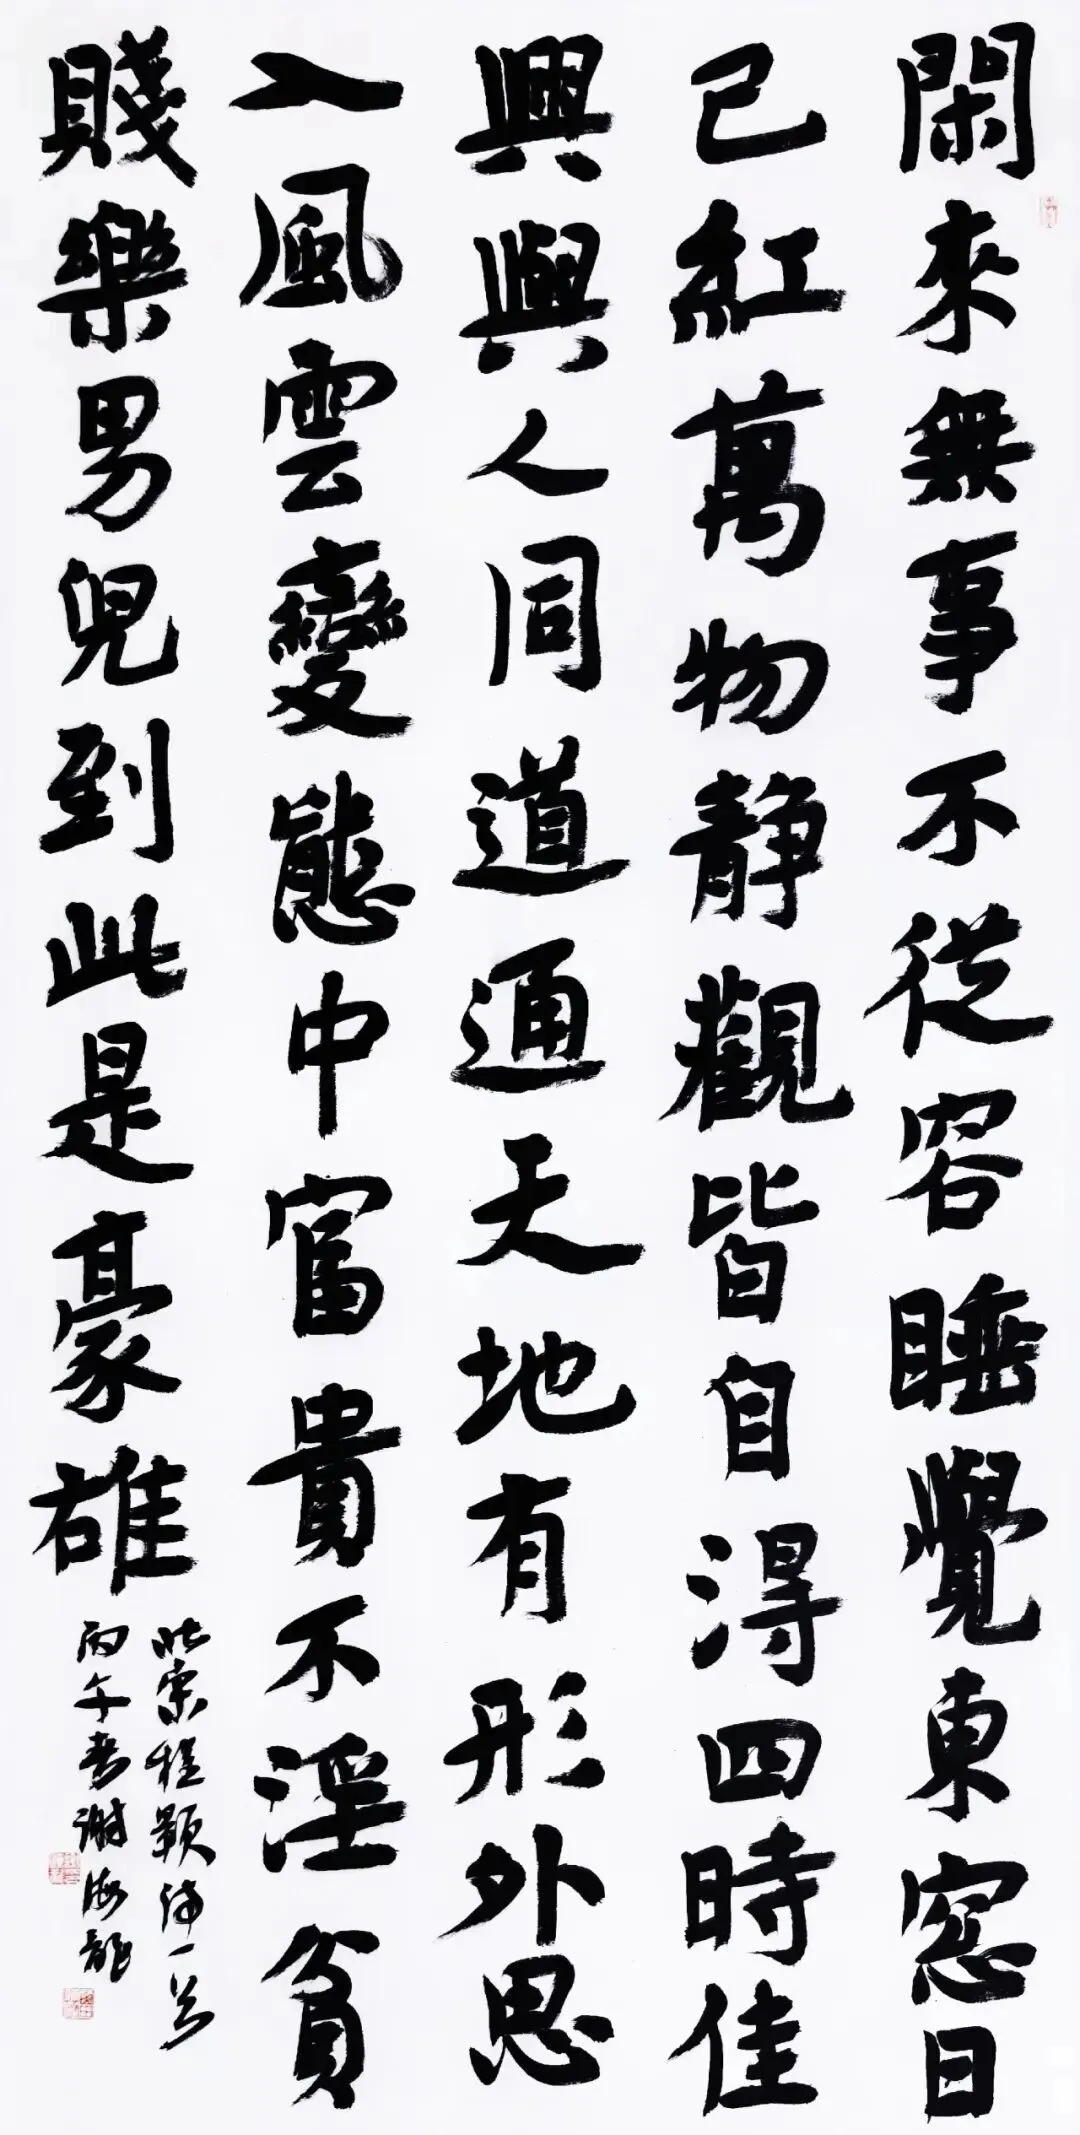 閑來無事不從容睡覺東窓日
已紅萬物静觀皆自淂四時佳
興與人同道通天地有形外思
入風雲變態中富貴不淫貧
賤樂男兒到此是豪雄
北宋程顥詩一首
丙午春謝海龍